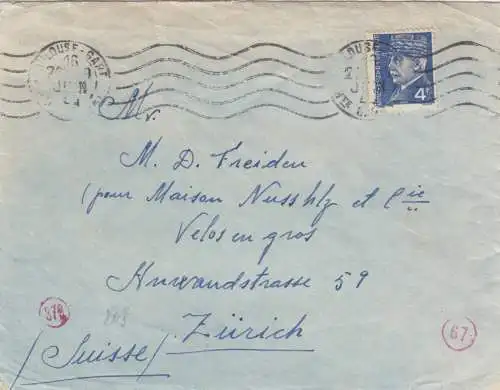 TOULOUSE-GARE
16
JUIN
4F
Mr
M. D. Freiden
(pour Maison Nusshlz et Cie
Velos en gros
Anwandstrasse 59
Zürich
/Suisse/
67